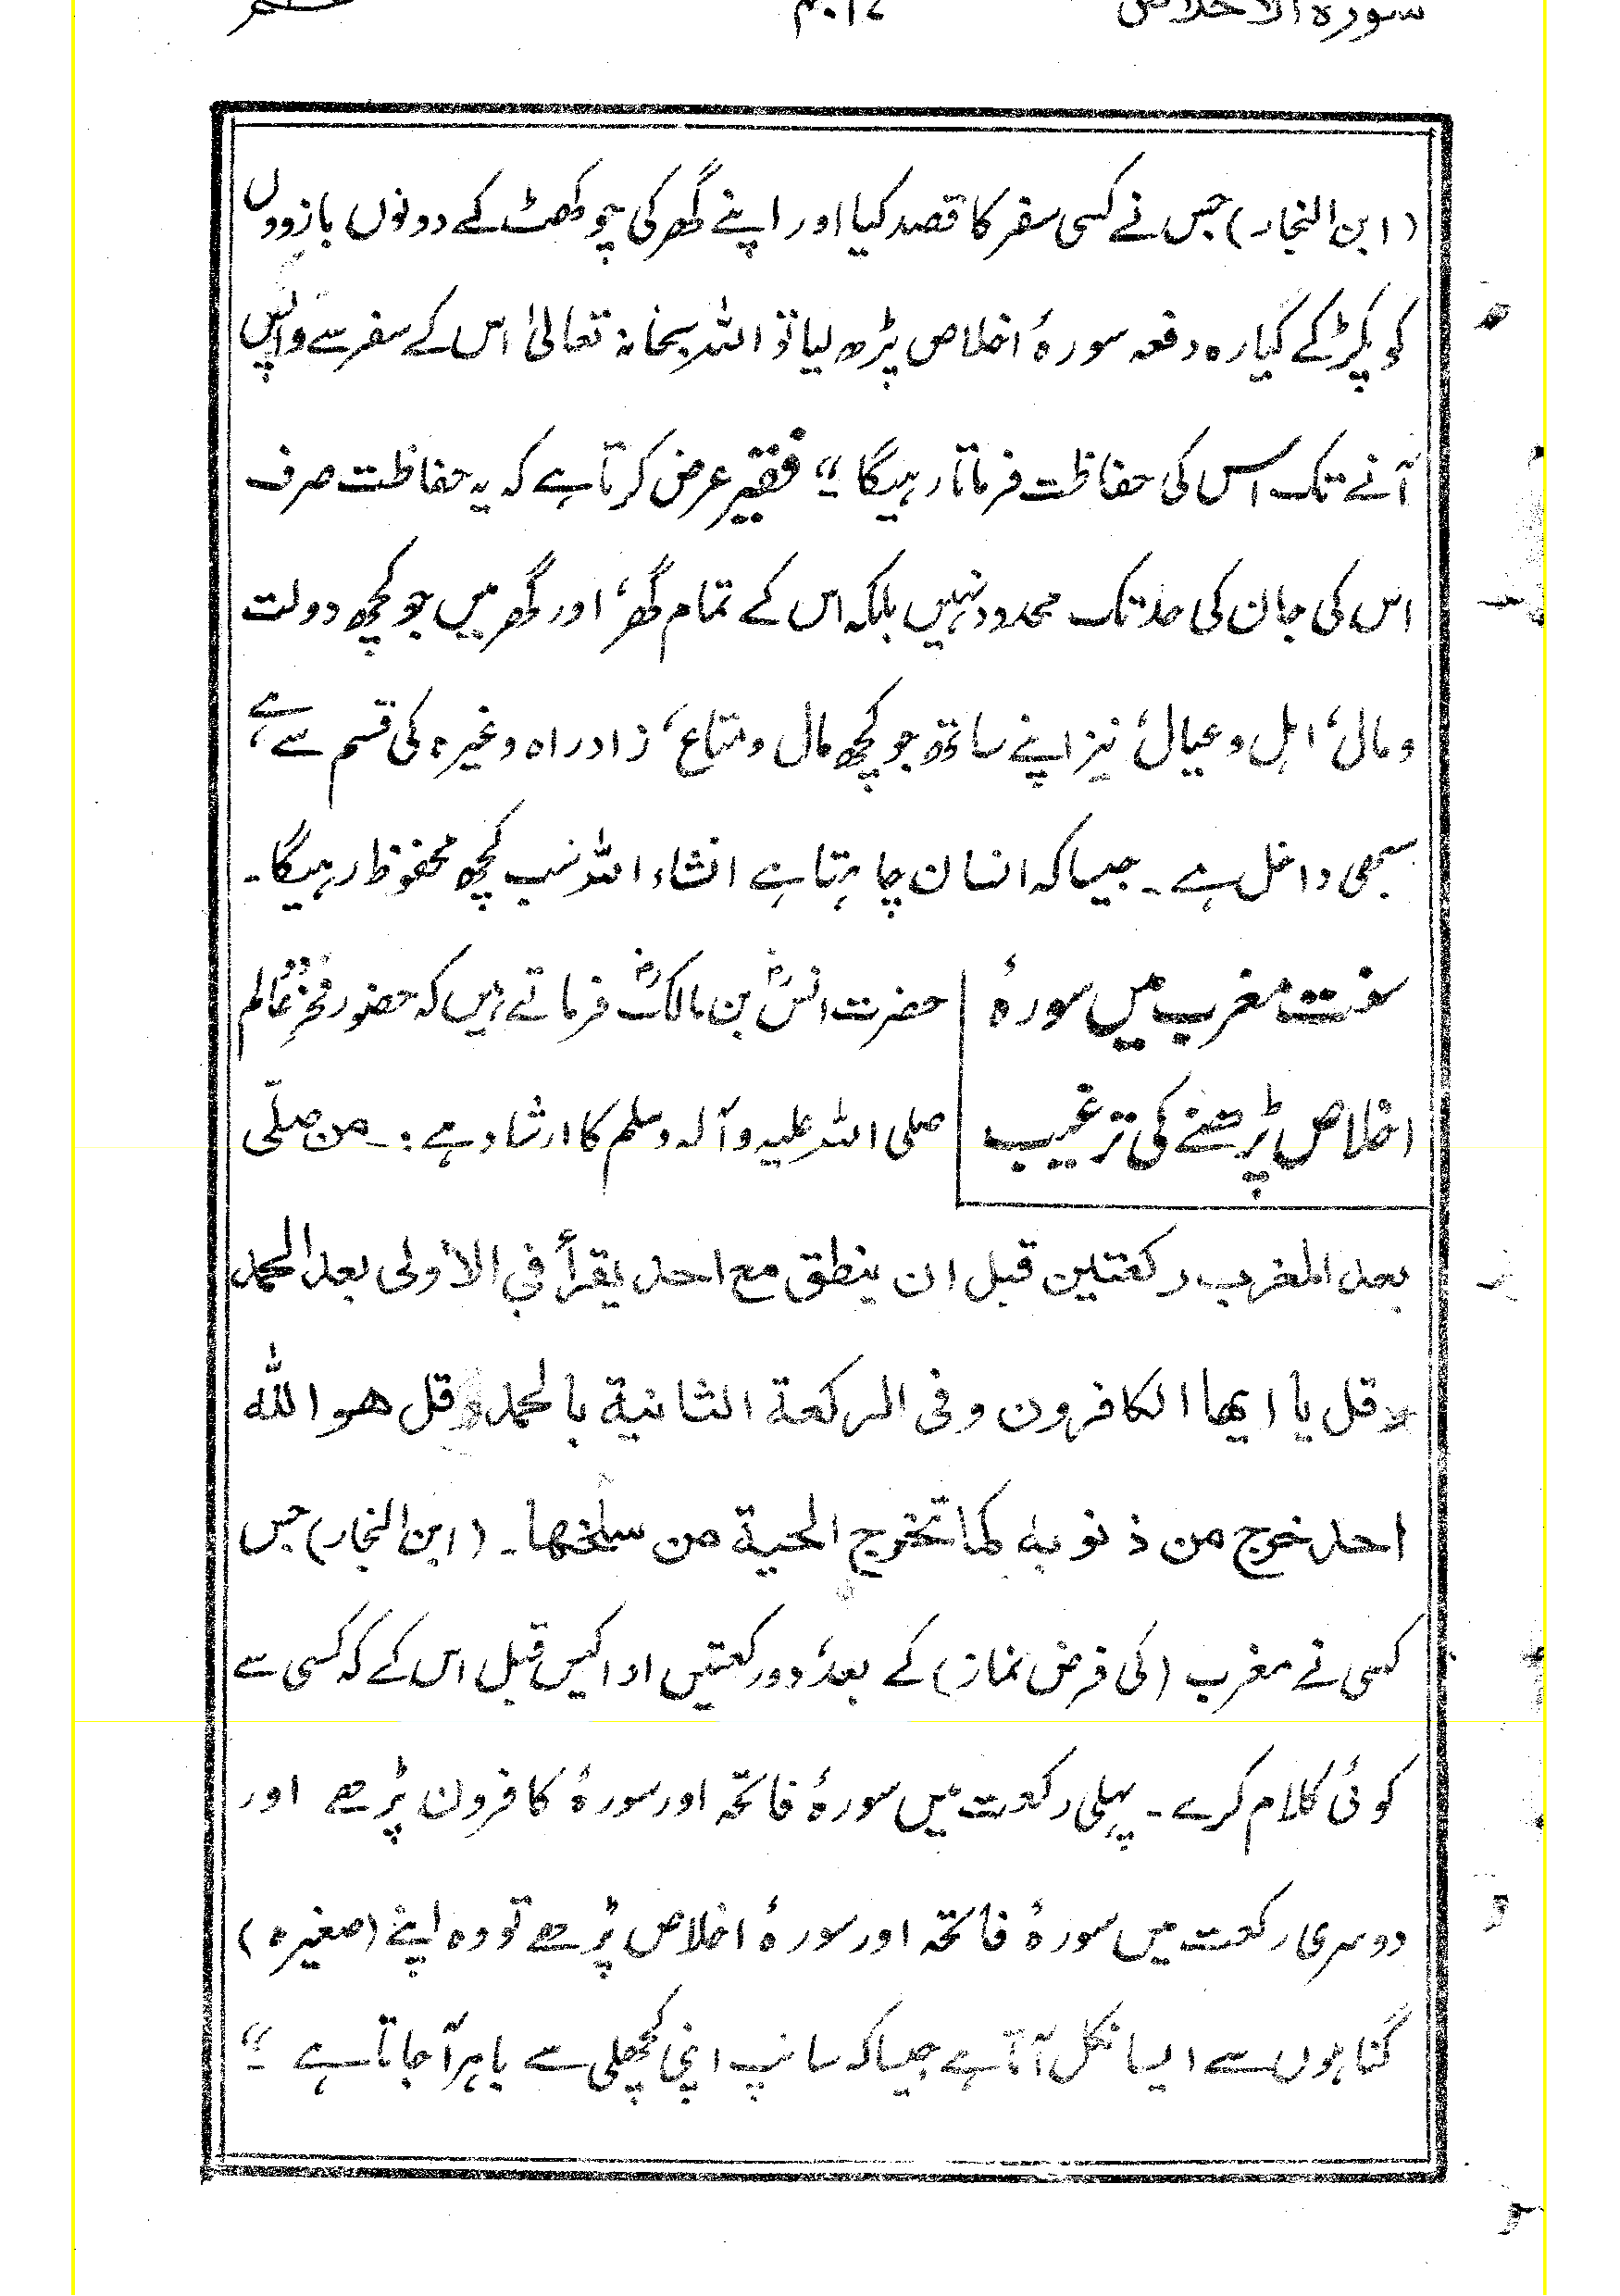 سورہ الاخلاص
(ابن النجار) جس نے کسی سفر کا قصد کیا اور اپنے گھر کی چوکھٹ کے دونوں بازووں
کو پکڑ کے گیارہ دفعہ سورۂ اخلاص پڑھ لیا تو اللہ سبحانہ تعالیٰ اس کے سفر سے واپس
آنے تک اس کی حفاظت فرماتا رہیگا ؛؛ فقیر عرض کرتا ہے کہ یہ حفاظت صرف
اس کی جان کی حد تک محدود نہیں بلکہ اس کے تمام گھر، اور گھر میں جو کچھ دولت
و مال، اہل و عیال، نیز اپنے ساتھ جو کچھ مال و متاع، زاد راہ وغیرہ کی قسم سے ہے،
سبھی داخل ہے۔ جیسا کہ انسان چاہتا ہے انشاء اللہ سب کچھ محفوظ رہیگا۔
سنت مغرب میں سورۂ
اخلاص پڑھنے کی ترغیب
حضرت انسؓ بن مالکؓ فرماتے ہیں کہ حضور فخرِ عالم
صلی اللہ علیہ وآلہ وسلم کا ارشاد ہے :۔ من صلّی
بعد المغرب رکعتین قبل ان ینطق مع احد یقرأ فی الاولی بعد الحمد
قل یا ایھا الکافرون وفی الرکعة الثانیة بالحمد وقل هو الله
احد خرج من ذنوبه کما تخرج الحیة من سلخها۔ (ابن النجار) جس
کسی نے مغرب (کی فرض نماز) کے بعد، دو رکعتیں ادا کیں قبل اس کے کہ کسی سے
کوئی کلام کرے۔ پہلی رکعت میں سورۂ فاتحہ اور سورۂ کافرون پڑھے اور
دوسری رکعت میں سورۂ فاتحہ اور سورۂ اخلاص پڑھے تو وہ اپنے (صغیرہ)
گناہوں سے ایسا نکل آتا ہے جیسا کہ سانپ اپنی کچھلی سے باہر آ جاتا ہے ؛؛